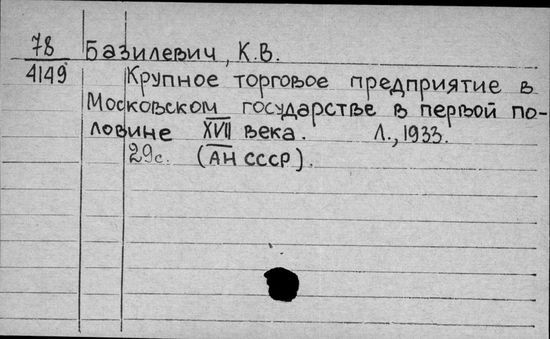 78 Базилевич, К.В.
4149 Крупное торговое предприятие в
Московском государстве в первой по-
ловине XVII века. Л., 1933.
29с. (АН СССР).